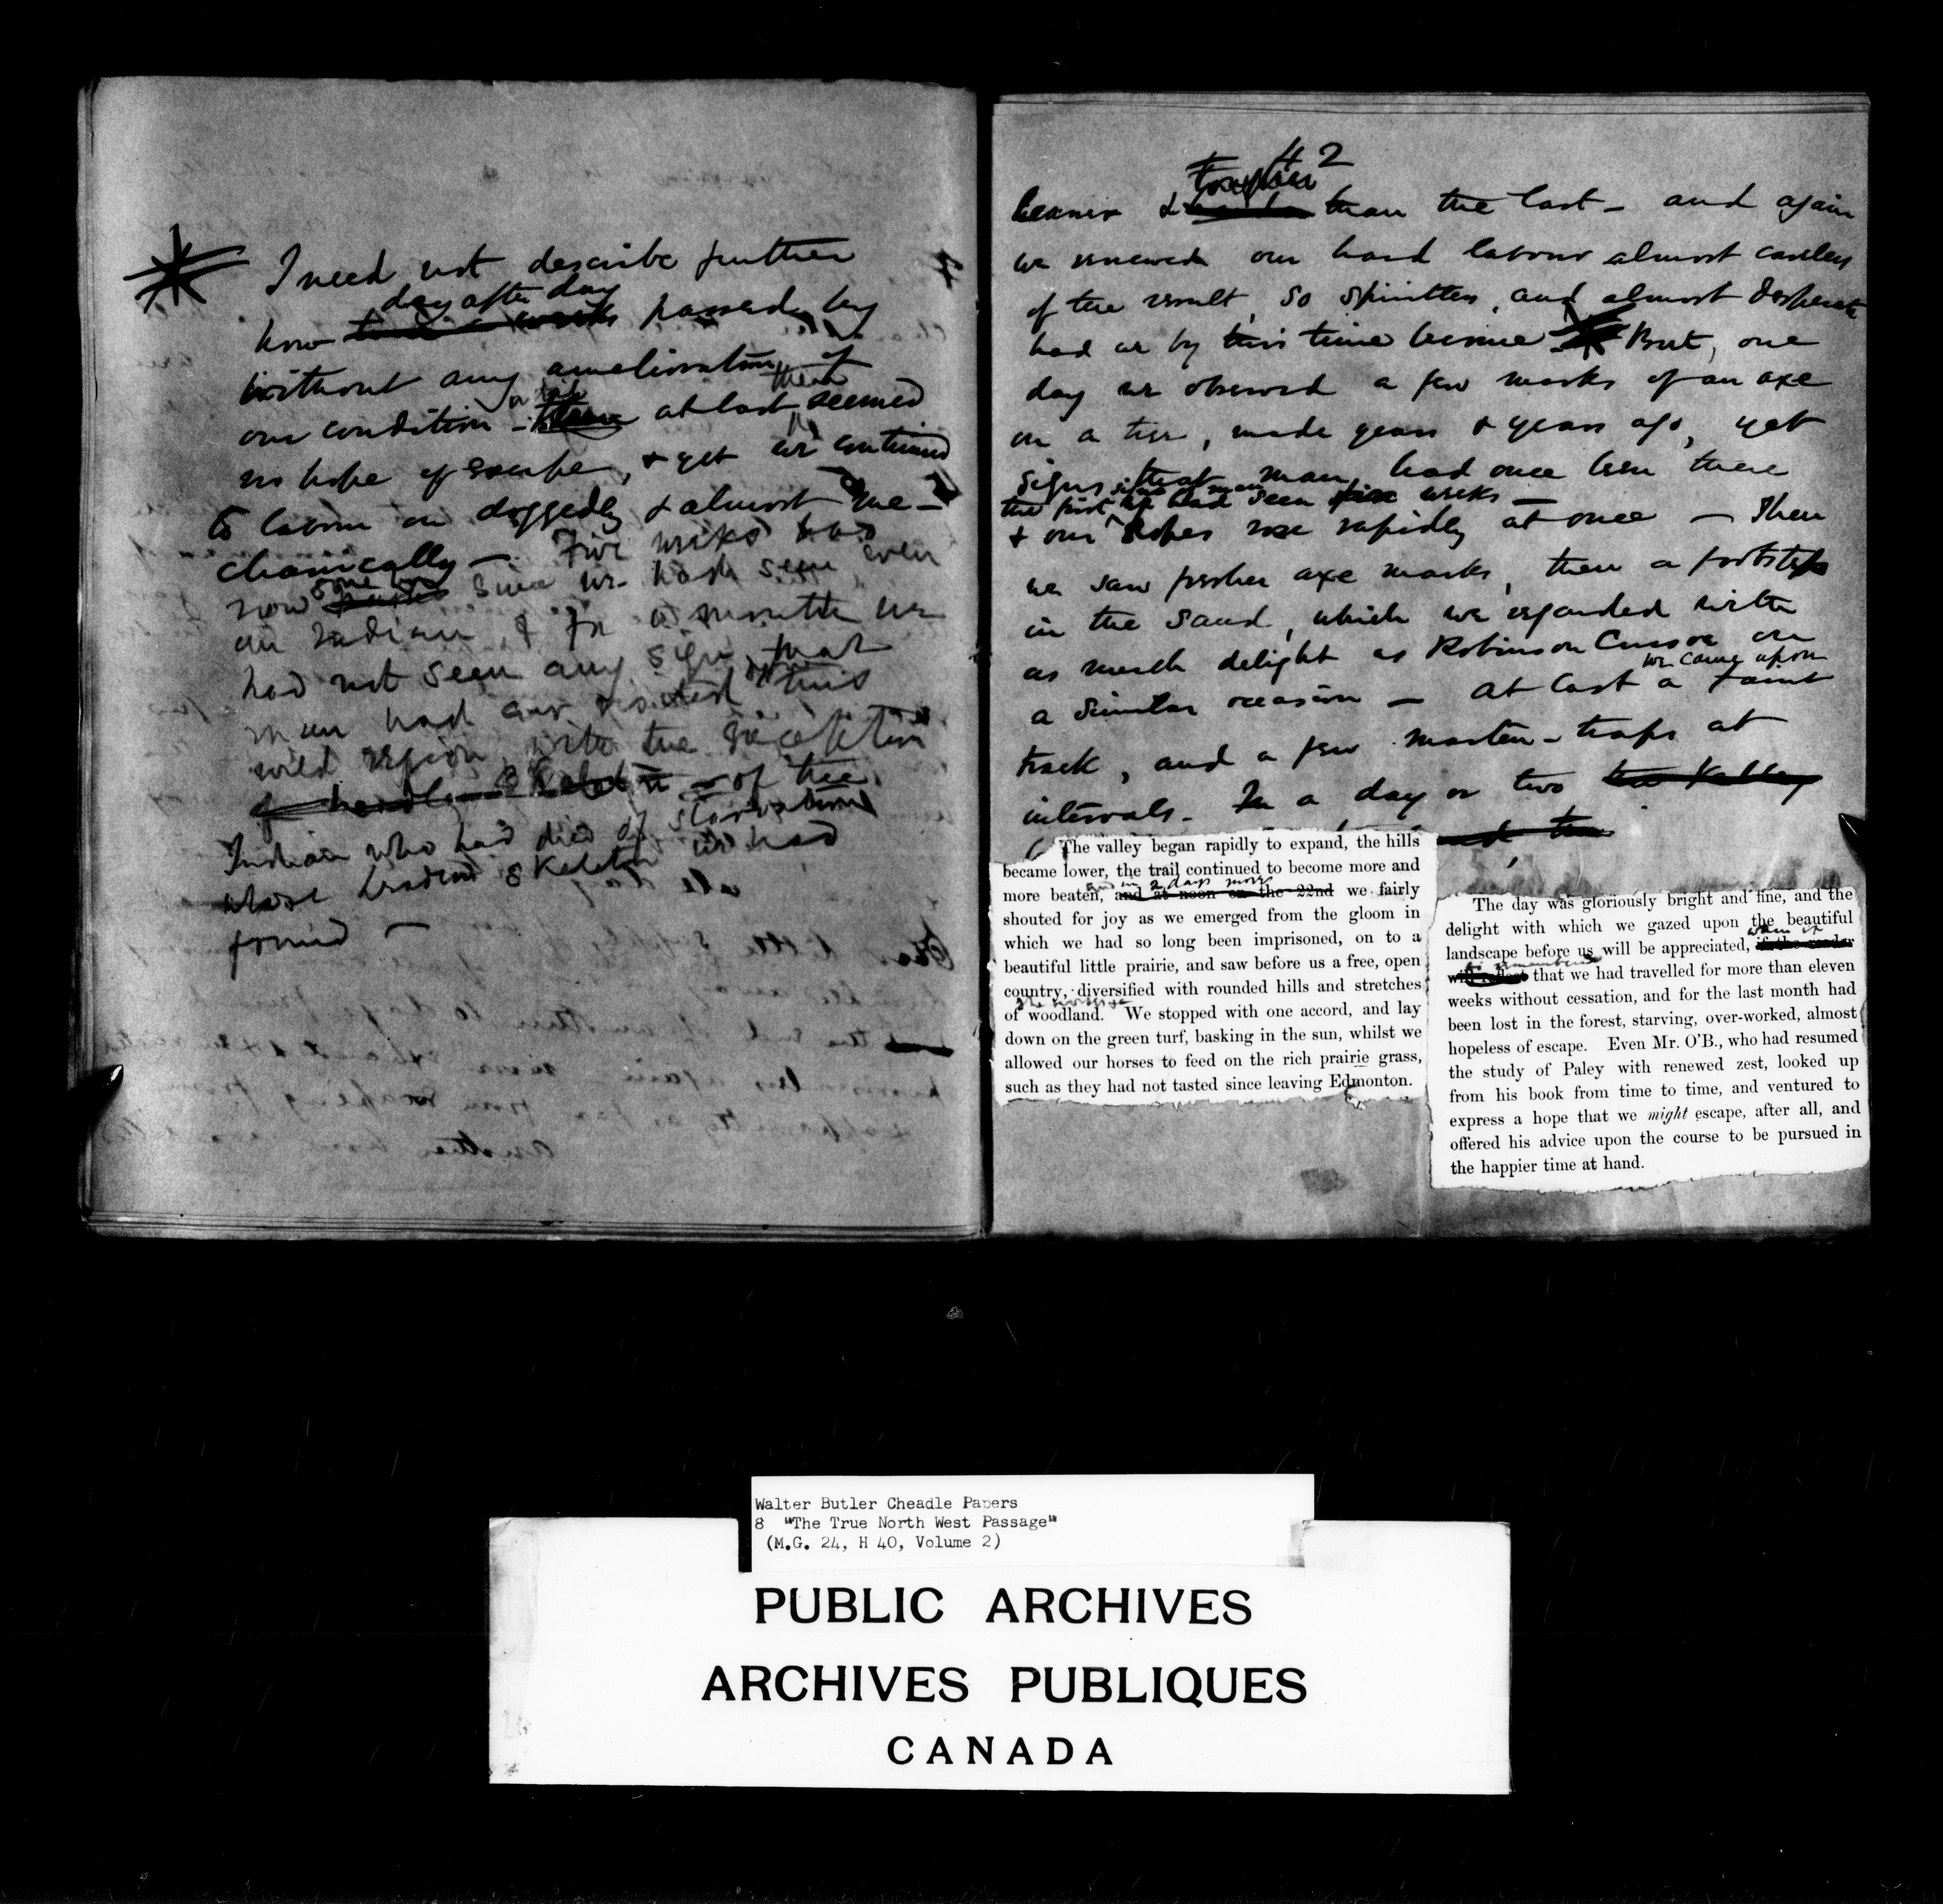 I need not describe further
day after day
how passed by
without any amelioration of
our condition - at last there seemed
no hope of escape, & yet we continued
to labour on doggedly & almost me-
chanically - Five weeks had
now gone by since we had seen even
an Indian, & for a month we
had not seen any sign that
man had ever visited this
wild region, with the exception
of the
Indian who had died of starvation
whose headless skeleton we had
found -
42
tougher
leaner & than the last - and again
we renewed our hard labour almost careless
of the result, so spiritless, and almost desperate
had we by this time become But, one
day we observed a few marks of an axe
on a tree, made years & years ago, yet
signs that man had once been there
the first signs of man we had seen for weeks -
& our hopes rose rapidly at once - Then
we saw fresher axe marks, then a footstep
in the sand, which we regarded with
as much delight as Robinson Crusoe on
a similar occasion - At last we came upon a faint
track, and a few marten-traps at
intervals. In a day or two the Valley
The valley began rapidly to expand, the hills
became lower, the trail continued to become more and
and in 2 days more
more beaten, and at noon on the 22nd we fairly
shouted for joy as we emerged from the gloom in
which we had so long been imprisoned, on to a
beautiful little prairie, and saw before us a free, open
country, diversified with rounded hills and stretches
of woodland. We stopped with one accord, and lay
down on the green turf, basking in the sun, whilst we
allowed our horses to feed on the rich prairie grass,
such as they had not tasted since leaving Edmonton.
The day was gloriously bright and fine, and the
delight with which we gazed upon the beautiful
when it
landscape before us will be appreciated, if the reader
is remembered
will reflect that we had travelled for more than eleven
weeks without cessation, and for the last month had
been lost in the forest, starving, over-worked, almost
hopeless of escape. Even Mr. O'B., who had resumed
the study of Paley with renewed zest, looked up
from his book from time to time, and ventured to
express a hope that we might escape, after all, and
offered his advice upon the course to be pursued in
the happier time at hand.
Walter Butler Cheadle Papers
8 "The True North West Passage"
(M.G. 24, H 40, Volume 2)
PUBLIC ARCHIVES
ARCHIVES PUBLIQUES
CANADA